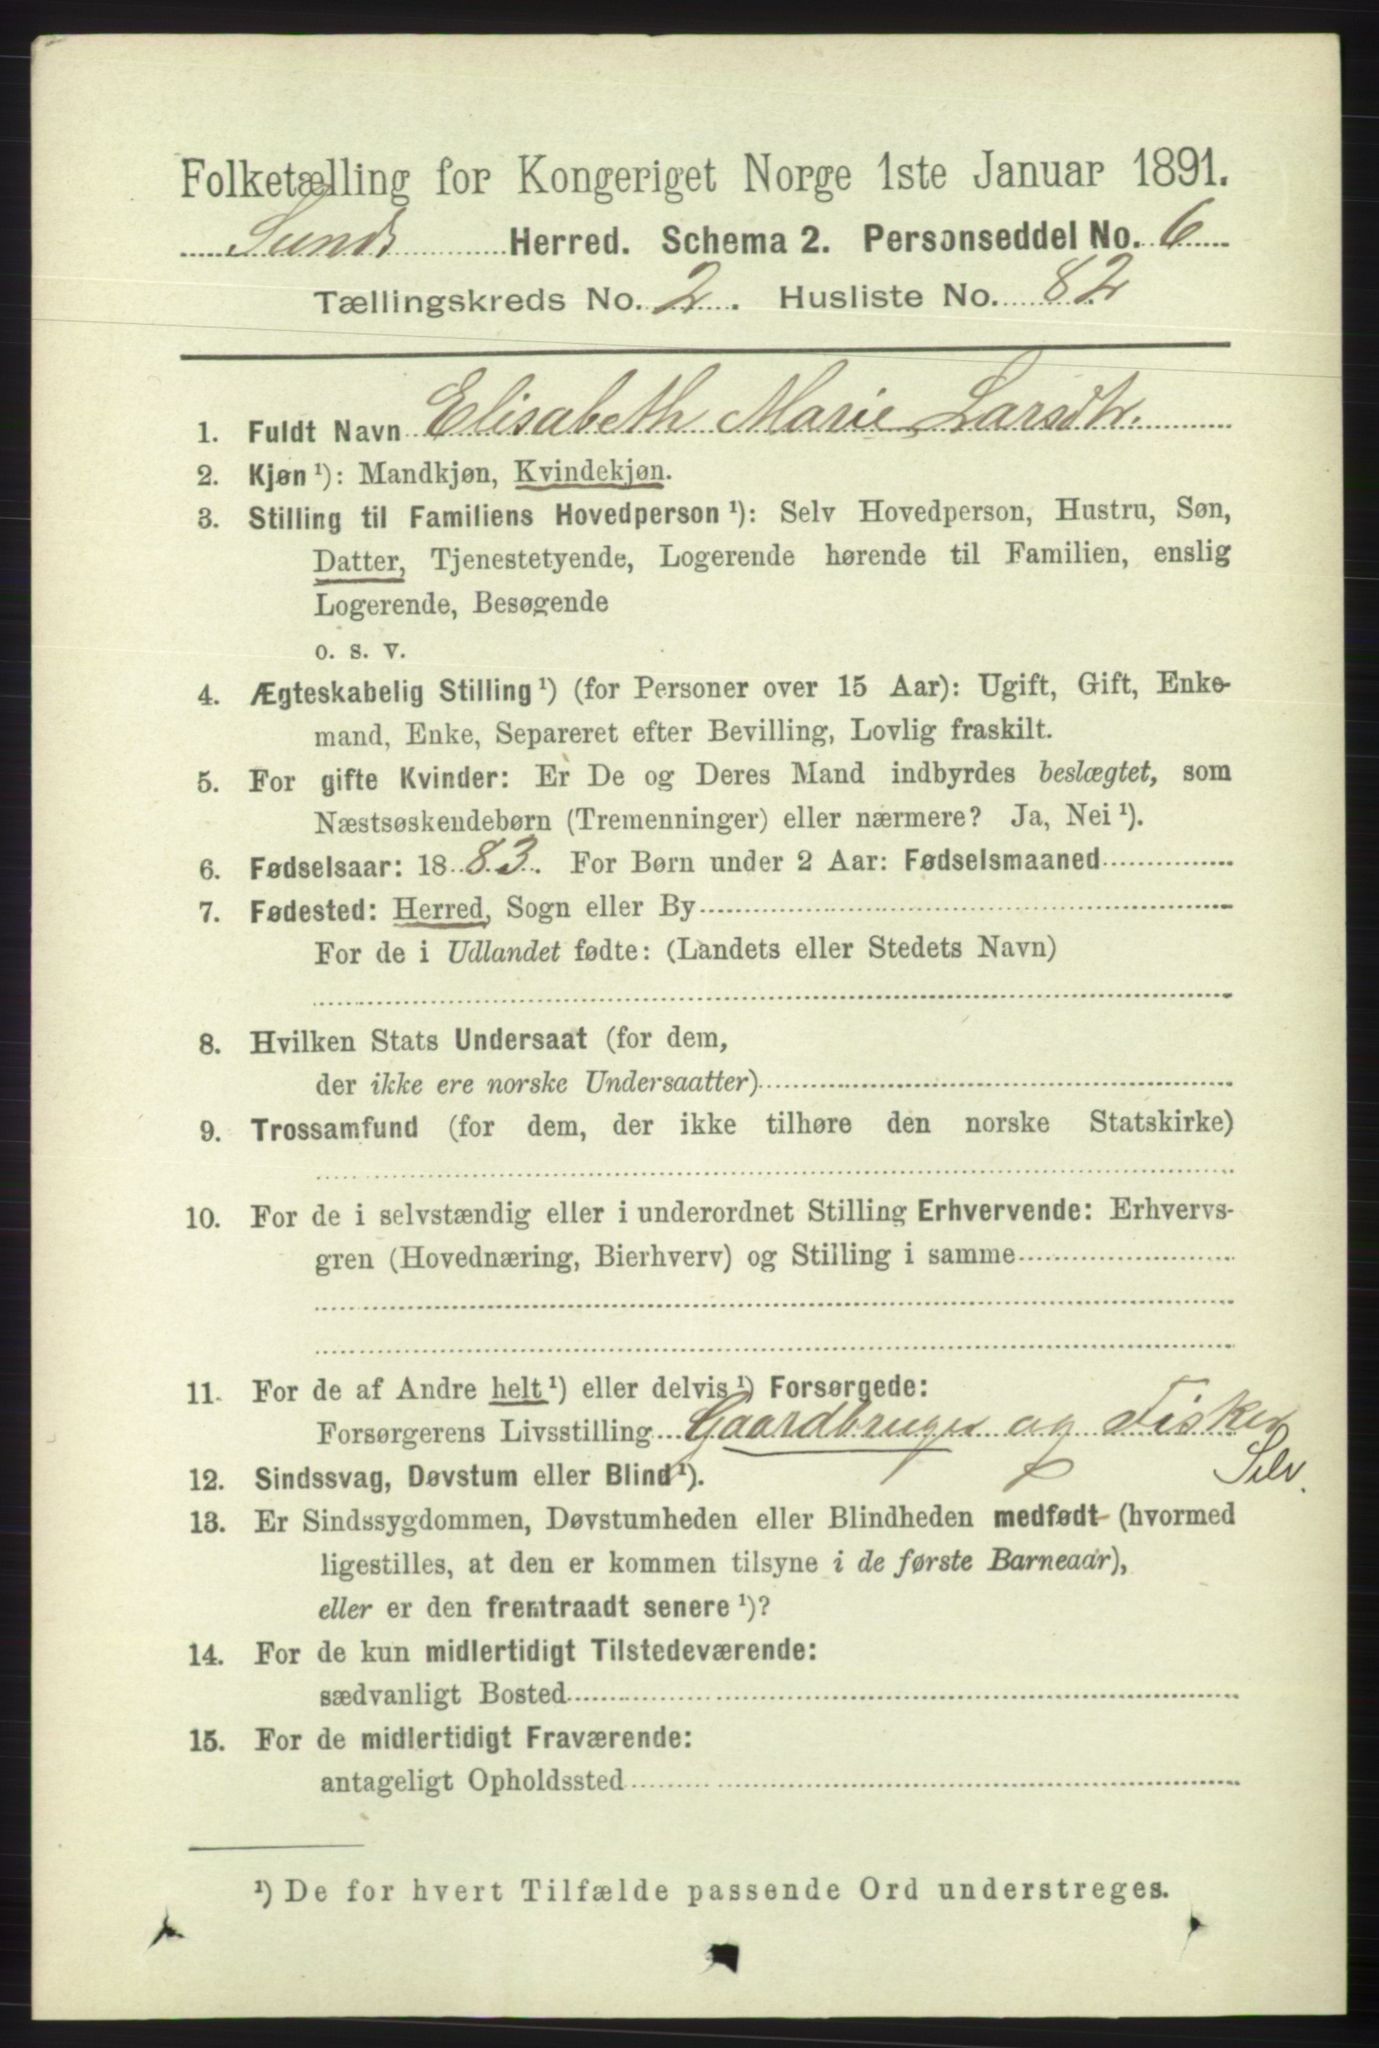 Folketælling for Kongeriget Norge 1ste Januar 1891.
Sunds Herred. Schema 2. Personseddel No. 6
Tællingskreds No. 2. Husliste No. 82
1. Fuldt Navn Elisabeth Marie Larsdtr.
2. Kjøn ¹): Mandkjøn, Kvindekjøn.
3. Stilling til Familiens Hovedperson ¹): Selv Hovedperson, Hustru, Søn,
Datter, Tjenestetyende, Logerende hørende til Familien, enslig
Logerende, Besøgende
o. s. v.
4. Ægteskabelig Stilling ¹) (for Personer over 15 Aar): Ugift, Gift, Enke-
mand, Enke, Separeret efter Bevilling, Lovlig fraskilt.
5. For gifte Kvinder: Er De og Deres Mand indbyrdes beslægtet, som
Næstsøskendebørn (Tremenninger) eller nærmere? Ja, Nei ¹).
6. Fødselsaar: 1883. For Børn under 2 Aar: Fødselsmaaned
7. Fødested: Herred, Sogn eller By
For de i Udlandet fødte: (Landets eller Stedets Navn)
8. Hvilken Stats Undersaat (for dem,
der ikke ere norske Undersaatter)
9. Trossamfund (for dem, der ikke tilhøre den norske Statskirke)
10. For de i selvstændig eller i underordnet Stilling Erhvervende: Erhvervs-
gren (Hovednæring, Bierhverv) og Stilling i samme
11. For de af Andre helt ¹) eller delvis ¹) Forsørgede:
Forsørgerens Livsstilling Gaardbruger og Fisker
Selv.
12. Sindssvag, Døvstum eller Blind ¹).
13. Er Sindssygdommen, Døvstumheden eller Blindheden medfødt (hvormed
ligestilles, at den er kommen tilsyne i de første Barneaar),
eller er den fremtraadt senere ¹)?
14. For de kun midlertidigt Tilstedeværende:
sædvanligt Bosted
15. For de midlertidigt Fraværende:
antageligt Opholdssted
¹) De for hvert Tilfælde passende Ord understreges.